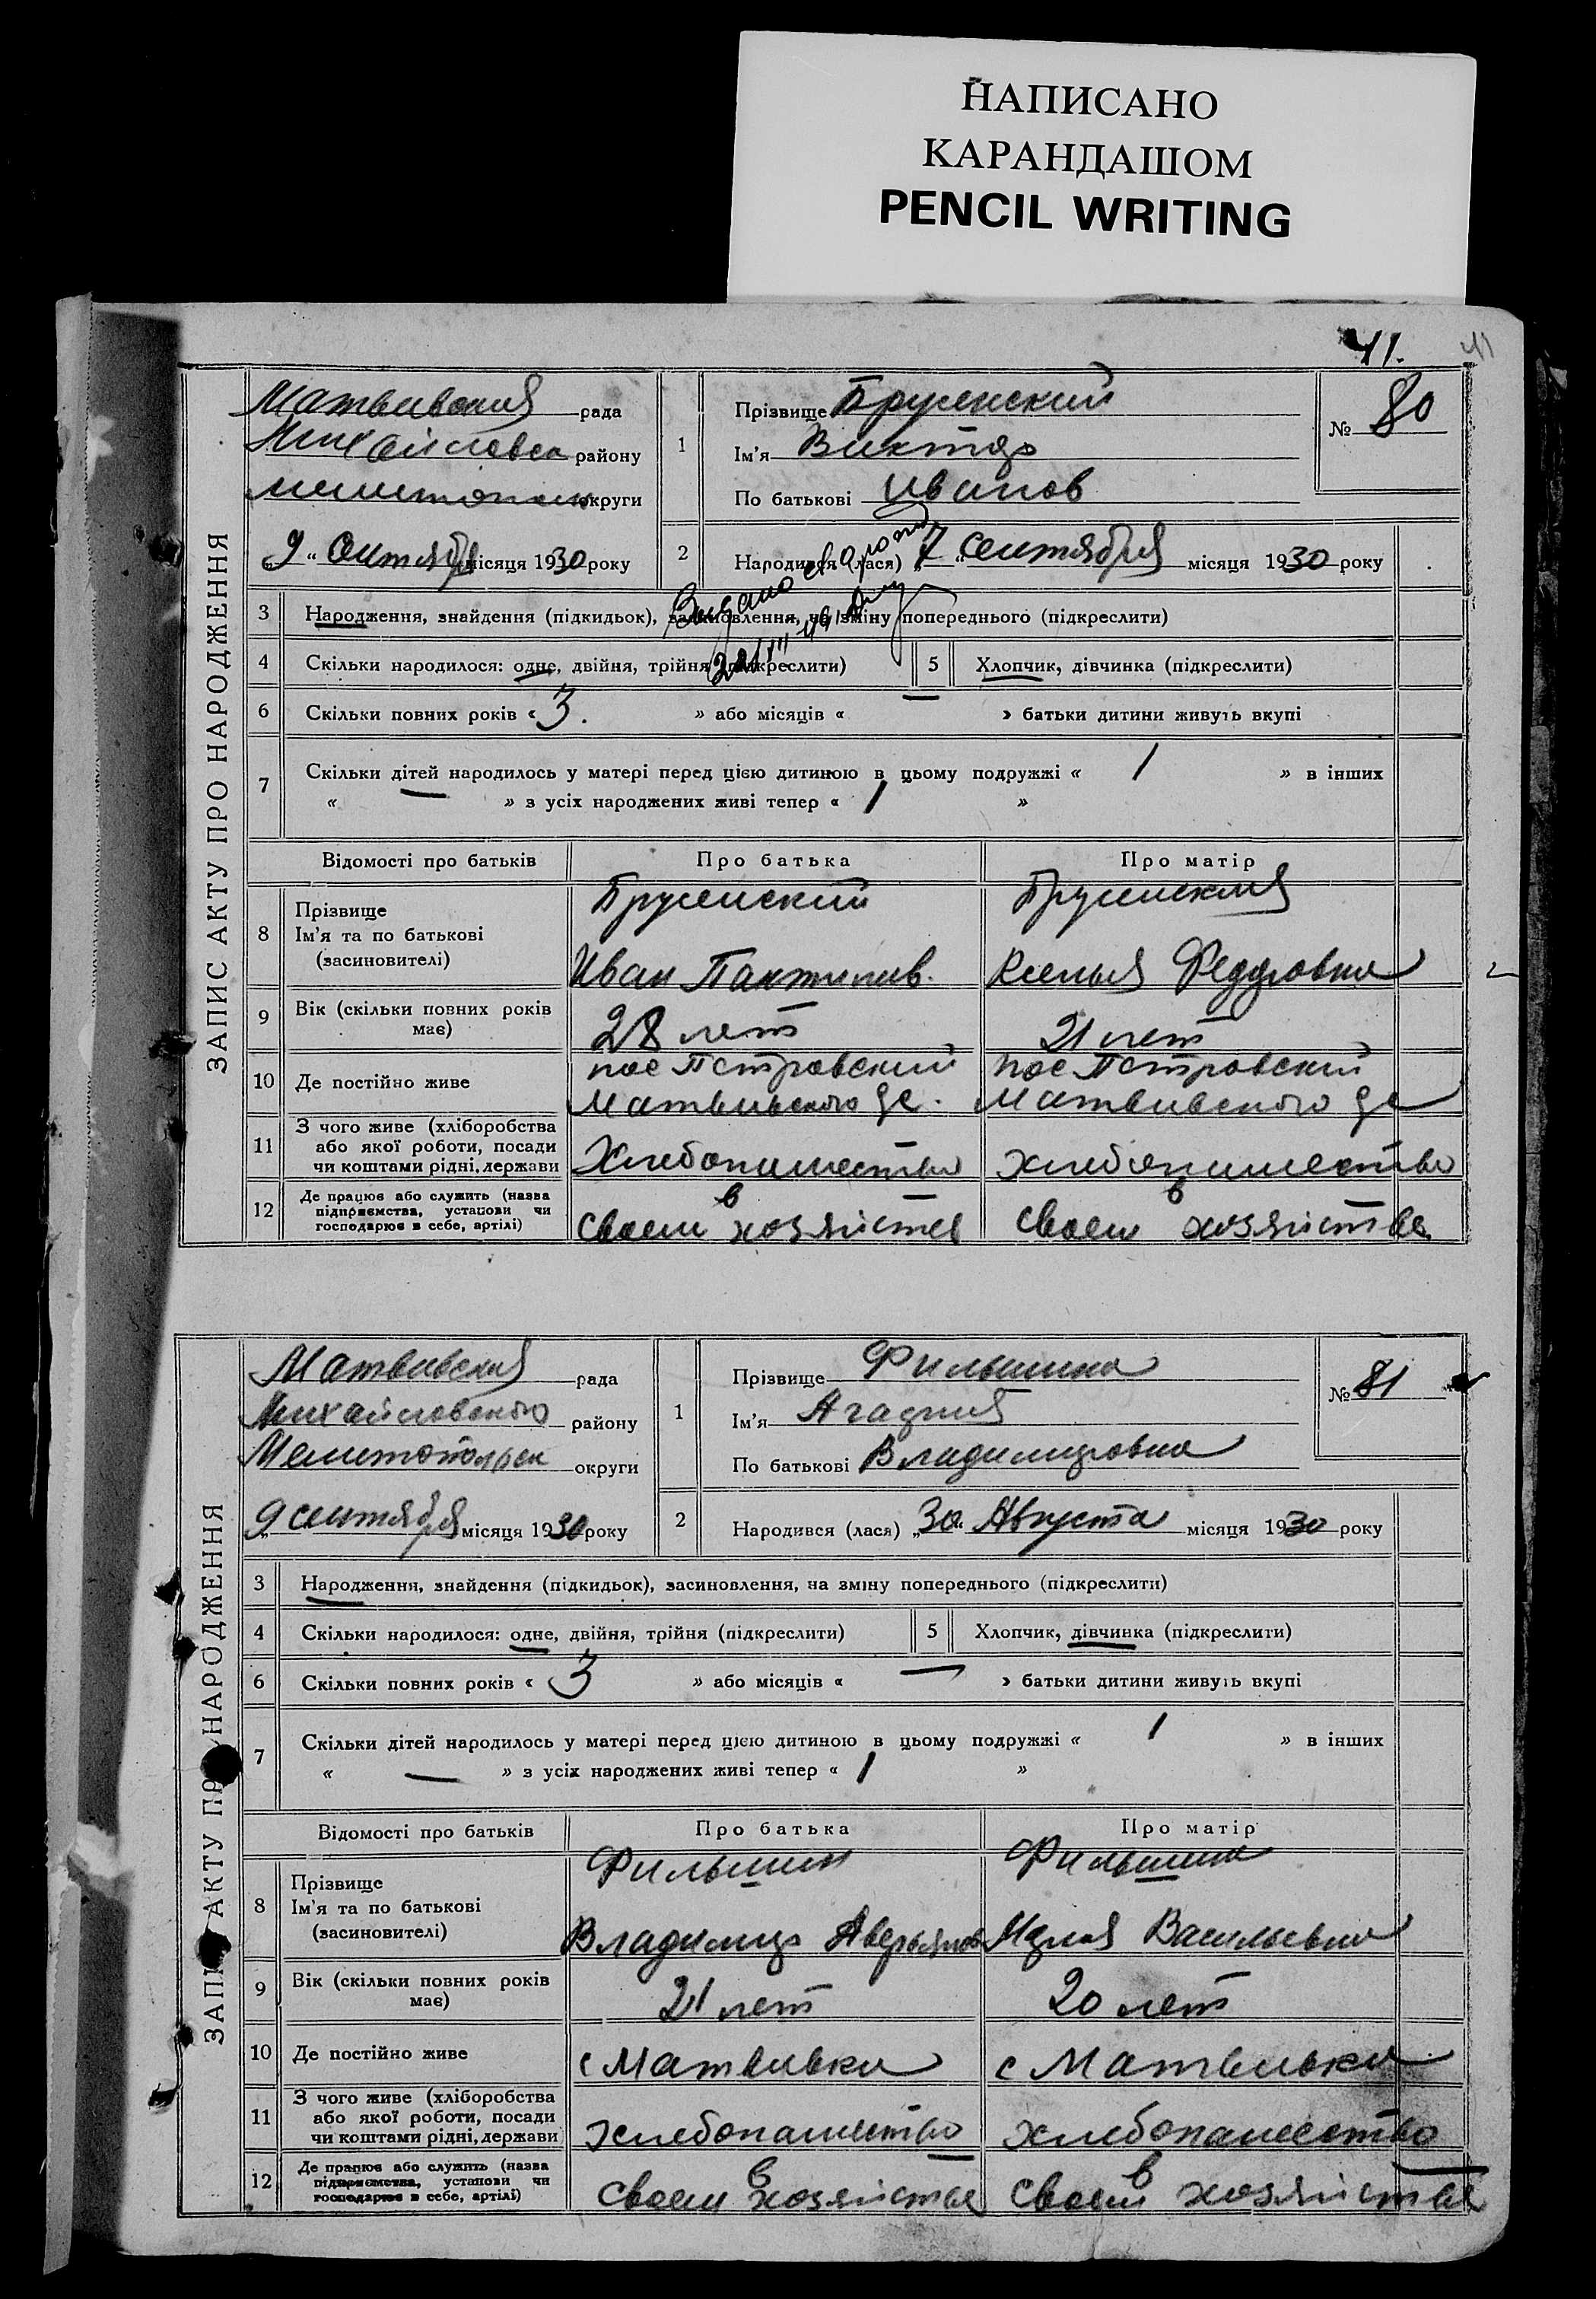 НАПИСАНО
КАРАНДАШОМ
PENCIL WRITING
41.
41
ЗАПИС АКТУ ПРО НАРОДЖЕННЯ
Матвивская рада
Михайловск району
мелитопольск округи
„9“ Сентября місяця 1930 року
1
Прізвище Брусенский
Ім'я Виктор
По батькові Иванов
№ 80
2 Народився (лася) „7“ сентября місяця 1930 року
Выдано
3 Народження, знайдення (підкидьок), засиновлення, на зміну попереднього (підкреслити)
4 Скільки народилося: одне, двійня, трійня (підкреслити) 5 Хлопчик, дівчинка (підкреслити)
6 Скільки повних років « 3. » або місяців « — » батьки дитини живуть вкупі
7 Скільки дітей народилось у матері перед цією дитиною в цьому подружжі « 1 » в інших
« — » з усіх народжених живі тепер « 1 »
Відомості про батьків Про батька Про матір
8 Прізвище Ім'я та по батькові (засиновителі)
Брусенский Брусенская
Иван Пантилив. Ксения Федоровна
9 Вік (скільки повних років має) 28 лет 21 лет
10 Де постійно живе
пос Петровский пос Петровский
Матвивского Матвивского
11 З чого живе (хліборобства або якої роботи, посади чи коштами рідні, держави Хлебопашество хлебопашество
12 Де працює або служить (назва підприємства, установи чи господарює в себе, артілі) в своем хозяйстве в своем хозяйстве
ЗАПИС АКТУ ПРО НАРОДЖЕННЯ
Матвивская рада
Михайловского району
Мелитопольск округи
„9 сентября місяця 1930 року
1
Прізвище Фильшина
Ім'я
По батькові Владимировна
№ 81
2 Народився (лася) „30“ Августа місяця 1930 року
3 Народження, знайдення (підкидьок), засиновлення, на зміну попереднього (підкреслити)
4 Скільки народилося: одне, двійня, трійня (підкреслити) 5 Хлопчик, дівчинка (підкреслити)
6 Скільки повних років « 3 » або місяців « — » батьки дитини живуть вкупі
7 Скільки дітей народилось у матері перед цією дитиною в цьому подружжі « 1 » в інших
« — » з усіх народжених живі тепер « 1 »
Відомості про батьків Про батька Про матір
8 Прізвище Ім'я та по батькові (засиновителі)
Фильшин Фильшина
Владимир Аверьянов Мария Васильевна
9 Вік (скільки повних років має) 21 лет 20 лет
10 Де постійно живе с Матвивки с Матвивки
11 З чого живе (хліборобства або якої роботи, посади чи коштами рідні, держави хлебопашество хлебопашество
12 Де працює або служить (назва підприємства, установи чи господарює в себе, артілі) в своем хозяйстве в своем хозяйстве